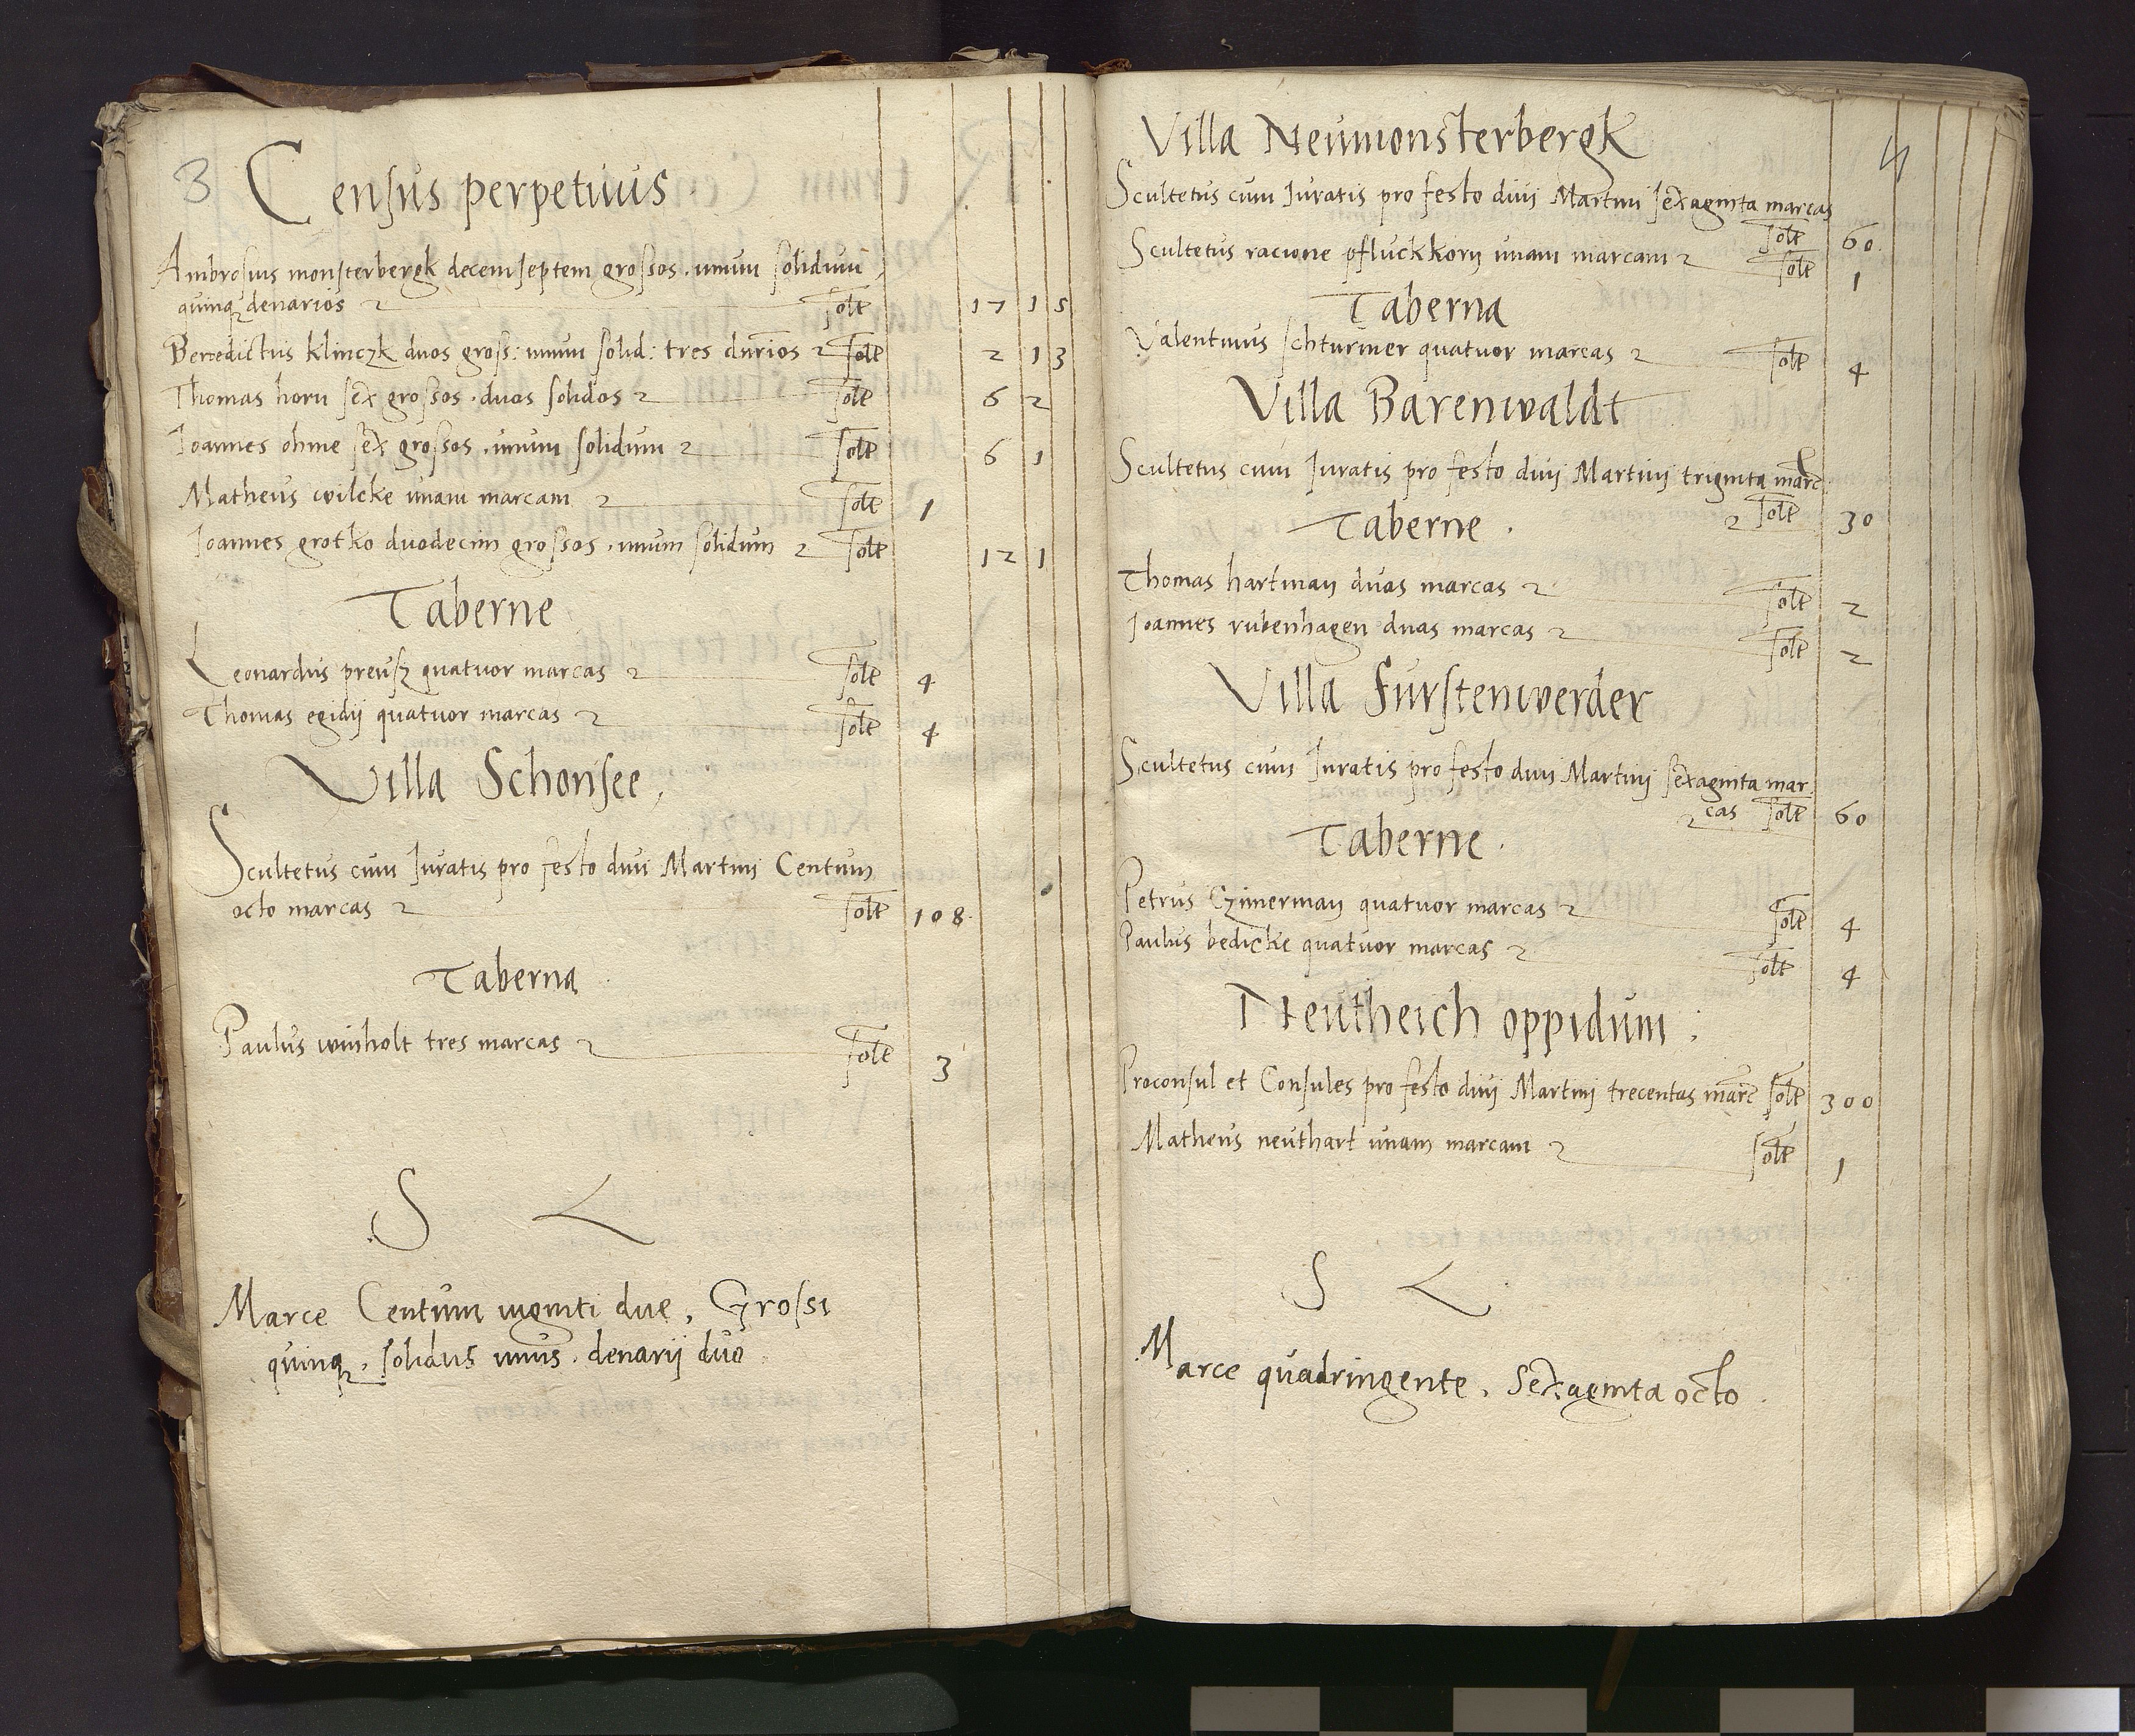 3 Census perpetuus
Ambrosius monsterbergk decem septem grossos . unum solidum ,
quinq denarios Solt 17 1 5
Benedictus Klinczk duos gross: unum solid: tres dnrios Solt 2 1 3
Thomas horn sex grossos . duos solidos Solt 6 2
Joannes ohme sex grossos . unum solidum Solt 6 1
Matheus wilcke unam marcam Solt 1
Joannes grotko duodecim grossos . unum solidum Solt 12 1
Taberne
Leonardus preusz quatuor marcas Solt 4
Thomas egidij quatuor marcas Solt 4
Villa Schonsee,
Scultetus cum Juratis pro festo divi Martinj Centum
octo marcas Solt 108
Taberna
Paulus winholt tres marcas Solt 3
S L
Marce Centum viginti due, Grossi
quinq, solidus unus . denarij duo
4
Villa Neumonsterbergk
Scultetus cum Juratis pro festo divi Martini sexaginta marcas
Solt 60
Scultetus racione pfluckkorn unam marcam Solt 1
Taberna
Valentinus schturmer quatuor marcas Solt 4
Villa Barenwaldt
Scultetus cum Juratis pro festo divi Martinj triginta marc
Solt 30
Taberne .
Thomas hartman duas marcas Solt 2
Joannes rubenhagen duas marcas Solt 2
Villa Furstenwerder
Scultetus cum Juratis pro festo divi Martinj sexaginta mar
cas Solt 60
Taberne .
Petrus Czimerman quatuor marcas Solt 4
Paulus bedicke quatuor marcas Solt 4
Neutheich oppidum .
Proconsul et Consules pro festo divi Martinj trecentas marc Solt 300
Matheus neuthart unam marcam Solt 1
S L
Marce quadringente, Sexaginta octo .